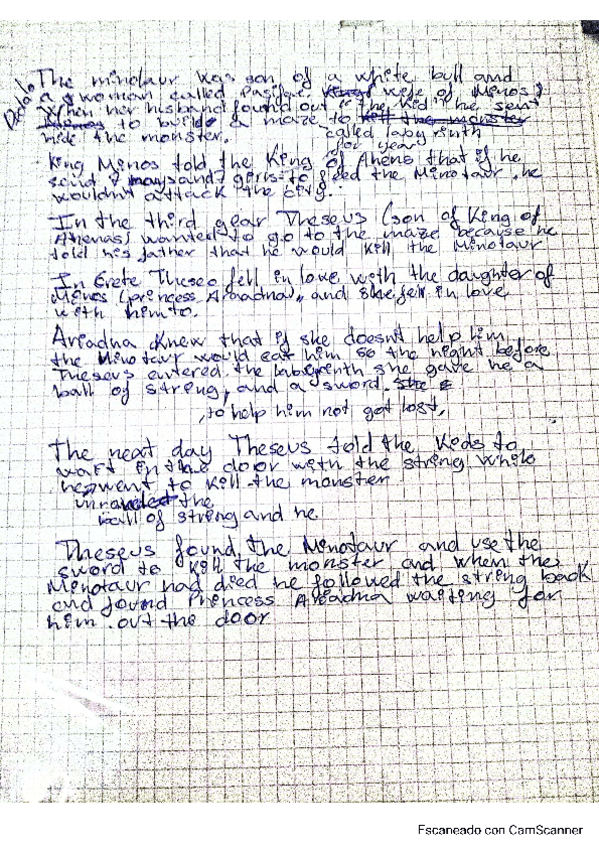 Dedalo
The minotaur was son of a white bull and
a woman called Pasifae wife of Minos.
When her husband found out "the kid" he sent
to build a maze to kill the monster
hide the monster. called labyrinth
for year
King Minos told the King of Athens that if he
send 7 boys and 7 girls to feed the Minotaur, he
wouldn't attack the city.
In the third year Theseus (son of King of
Athenas) wanted to go to the maze because he
told his father that he would kill the Minotaur
In Crete Theseo fell in love with the daughter of
Minos (princess Ariadna), and she fell in love
with him to.
Ariadna knew that if she doesn't help him
the Minotaur would eat him so the night before
Theseus entered the labyrinth she gave he a
ball of string, and a sword. She
, to help him not got lost,
The next day Theseus told the Kids to
wait in the door with the string while
he went to kill the monster
unraveled the
ball of string and he
Theseus found the Minotaur and use the
sword to kill the monster and when the
Minotaur had died he followed the string back
and found Princess Ariadna waiting for
him out the door
Escaneado con CamScanner